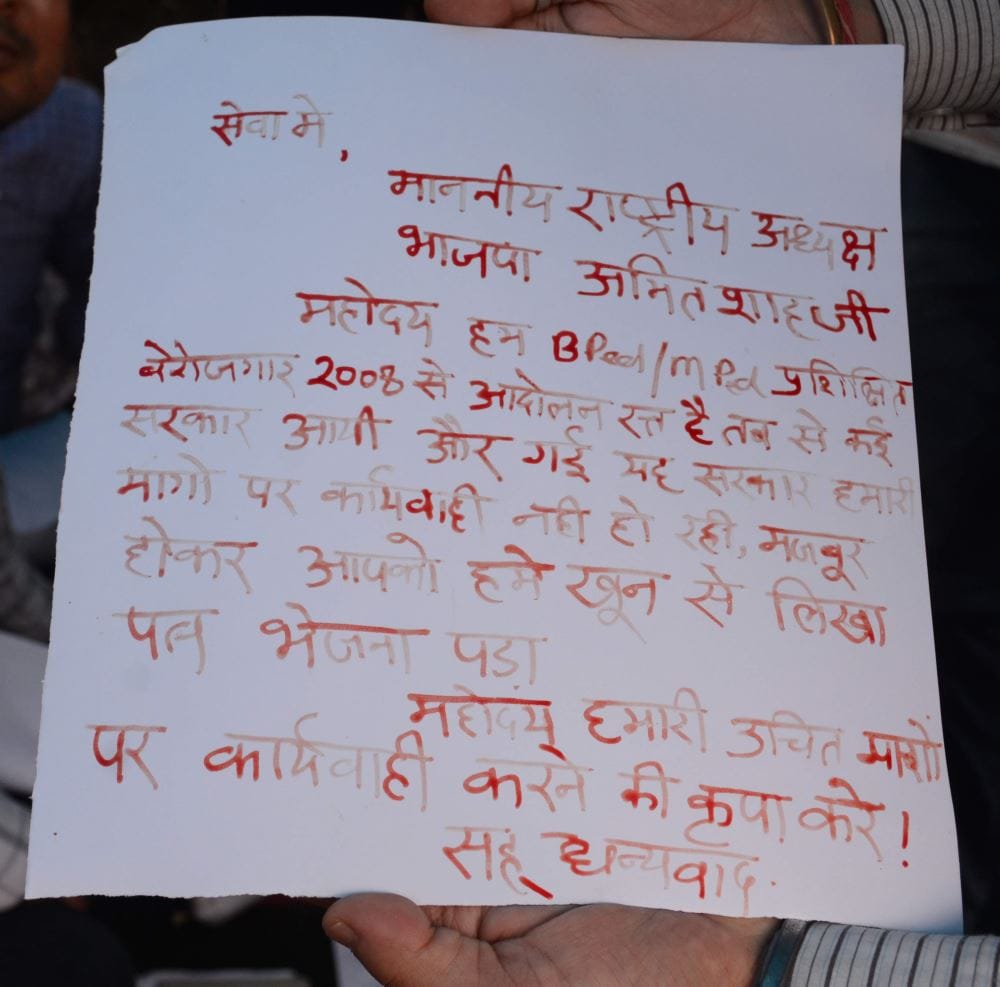 सेवा मे,
माननीय राष्ट्रीय अध्यक्ष
भाजपा अमित शाह जी
महोदय हम BPed/MPed प्रशिक्षित
बेरोजगार 2008 से आदोलन रत्त है तब से कई
सरकार आयी और गई यह सरकार हमारी
मांगो पर कार्यवाही नही हो रही, मजबूर
होकर आपको हमे खून से लिखा
पत्र भेजना पड़ा
महोदय् हमारी उचित मागों
पर कार्यवाही करने की कृपा करे!
सह् धन्यवाद.